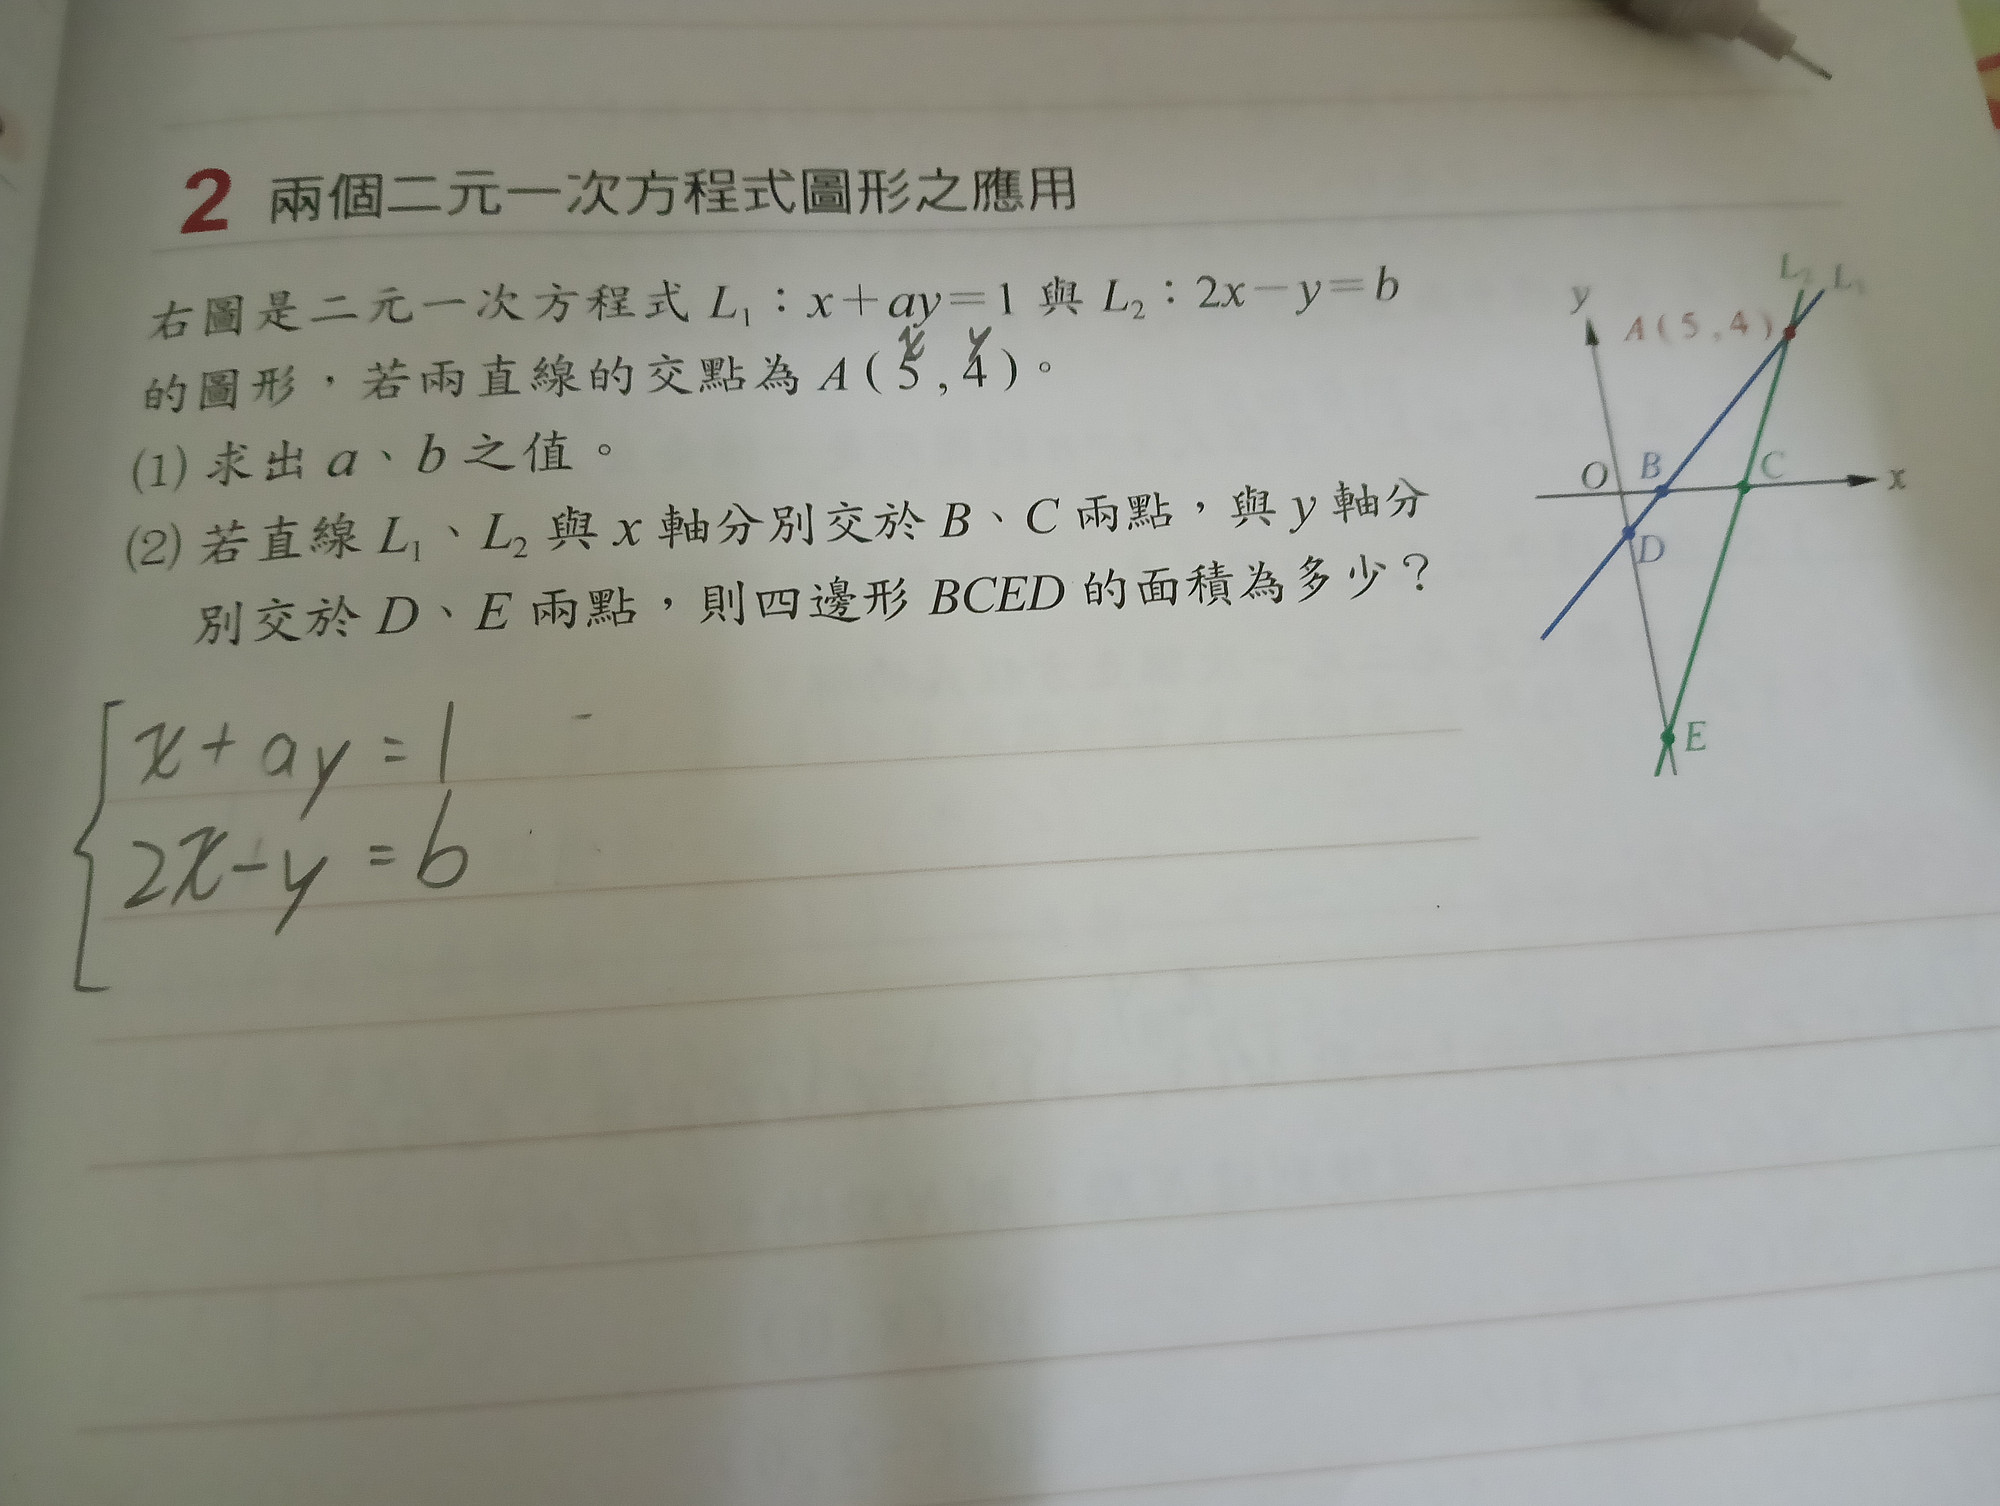 2 兩個二元一次方程式圖形之應用
右圖是二元一次方程式 L₁：x＋ay＝1 與 L₂：2x－y＝b
x y
的圖形，若兩直線的交點為 A(5,4)。
(1) 求出 a、b 之值。
(2) 若直線 L₁、L₂ 與 x 軸分別交於 B、C 兩點，與 y 軸分
別交於 D、E 兩點，則四邊形 BCED 的面積為多少？
L₂ L₁
y
A(5,4)
O B C x
D
E
x+ay=1
2x-y=b